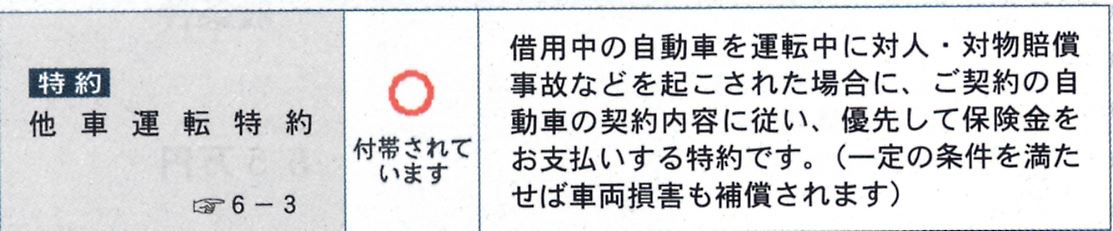 特約
他車運転特約
☞6－3
○
付帯されて
います
借用中の自動車を運転中に対人・対物賠償
事故などを起こされた場合に、ご契約の自
動車の契約内容に従い、優先して保険金を
お支払いする特約です。（一定の条件を満た
せば車両損害も補償されます）